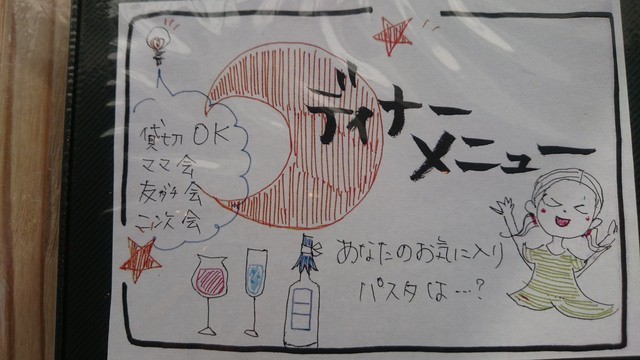 ディナー
メニュー
貸切OK
ママ会
友がチ会
二次会
あなたのお気に入り
パスタは…?